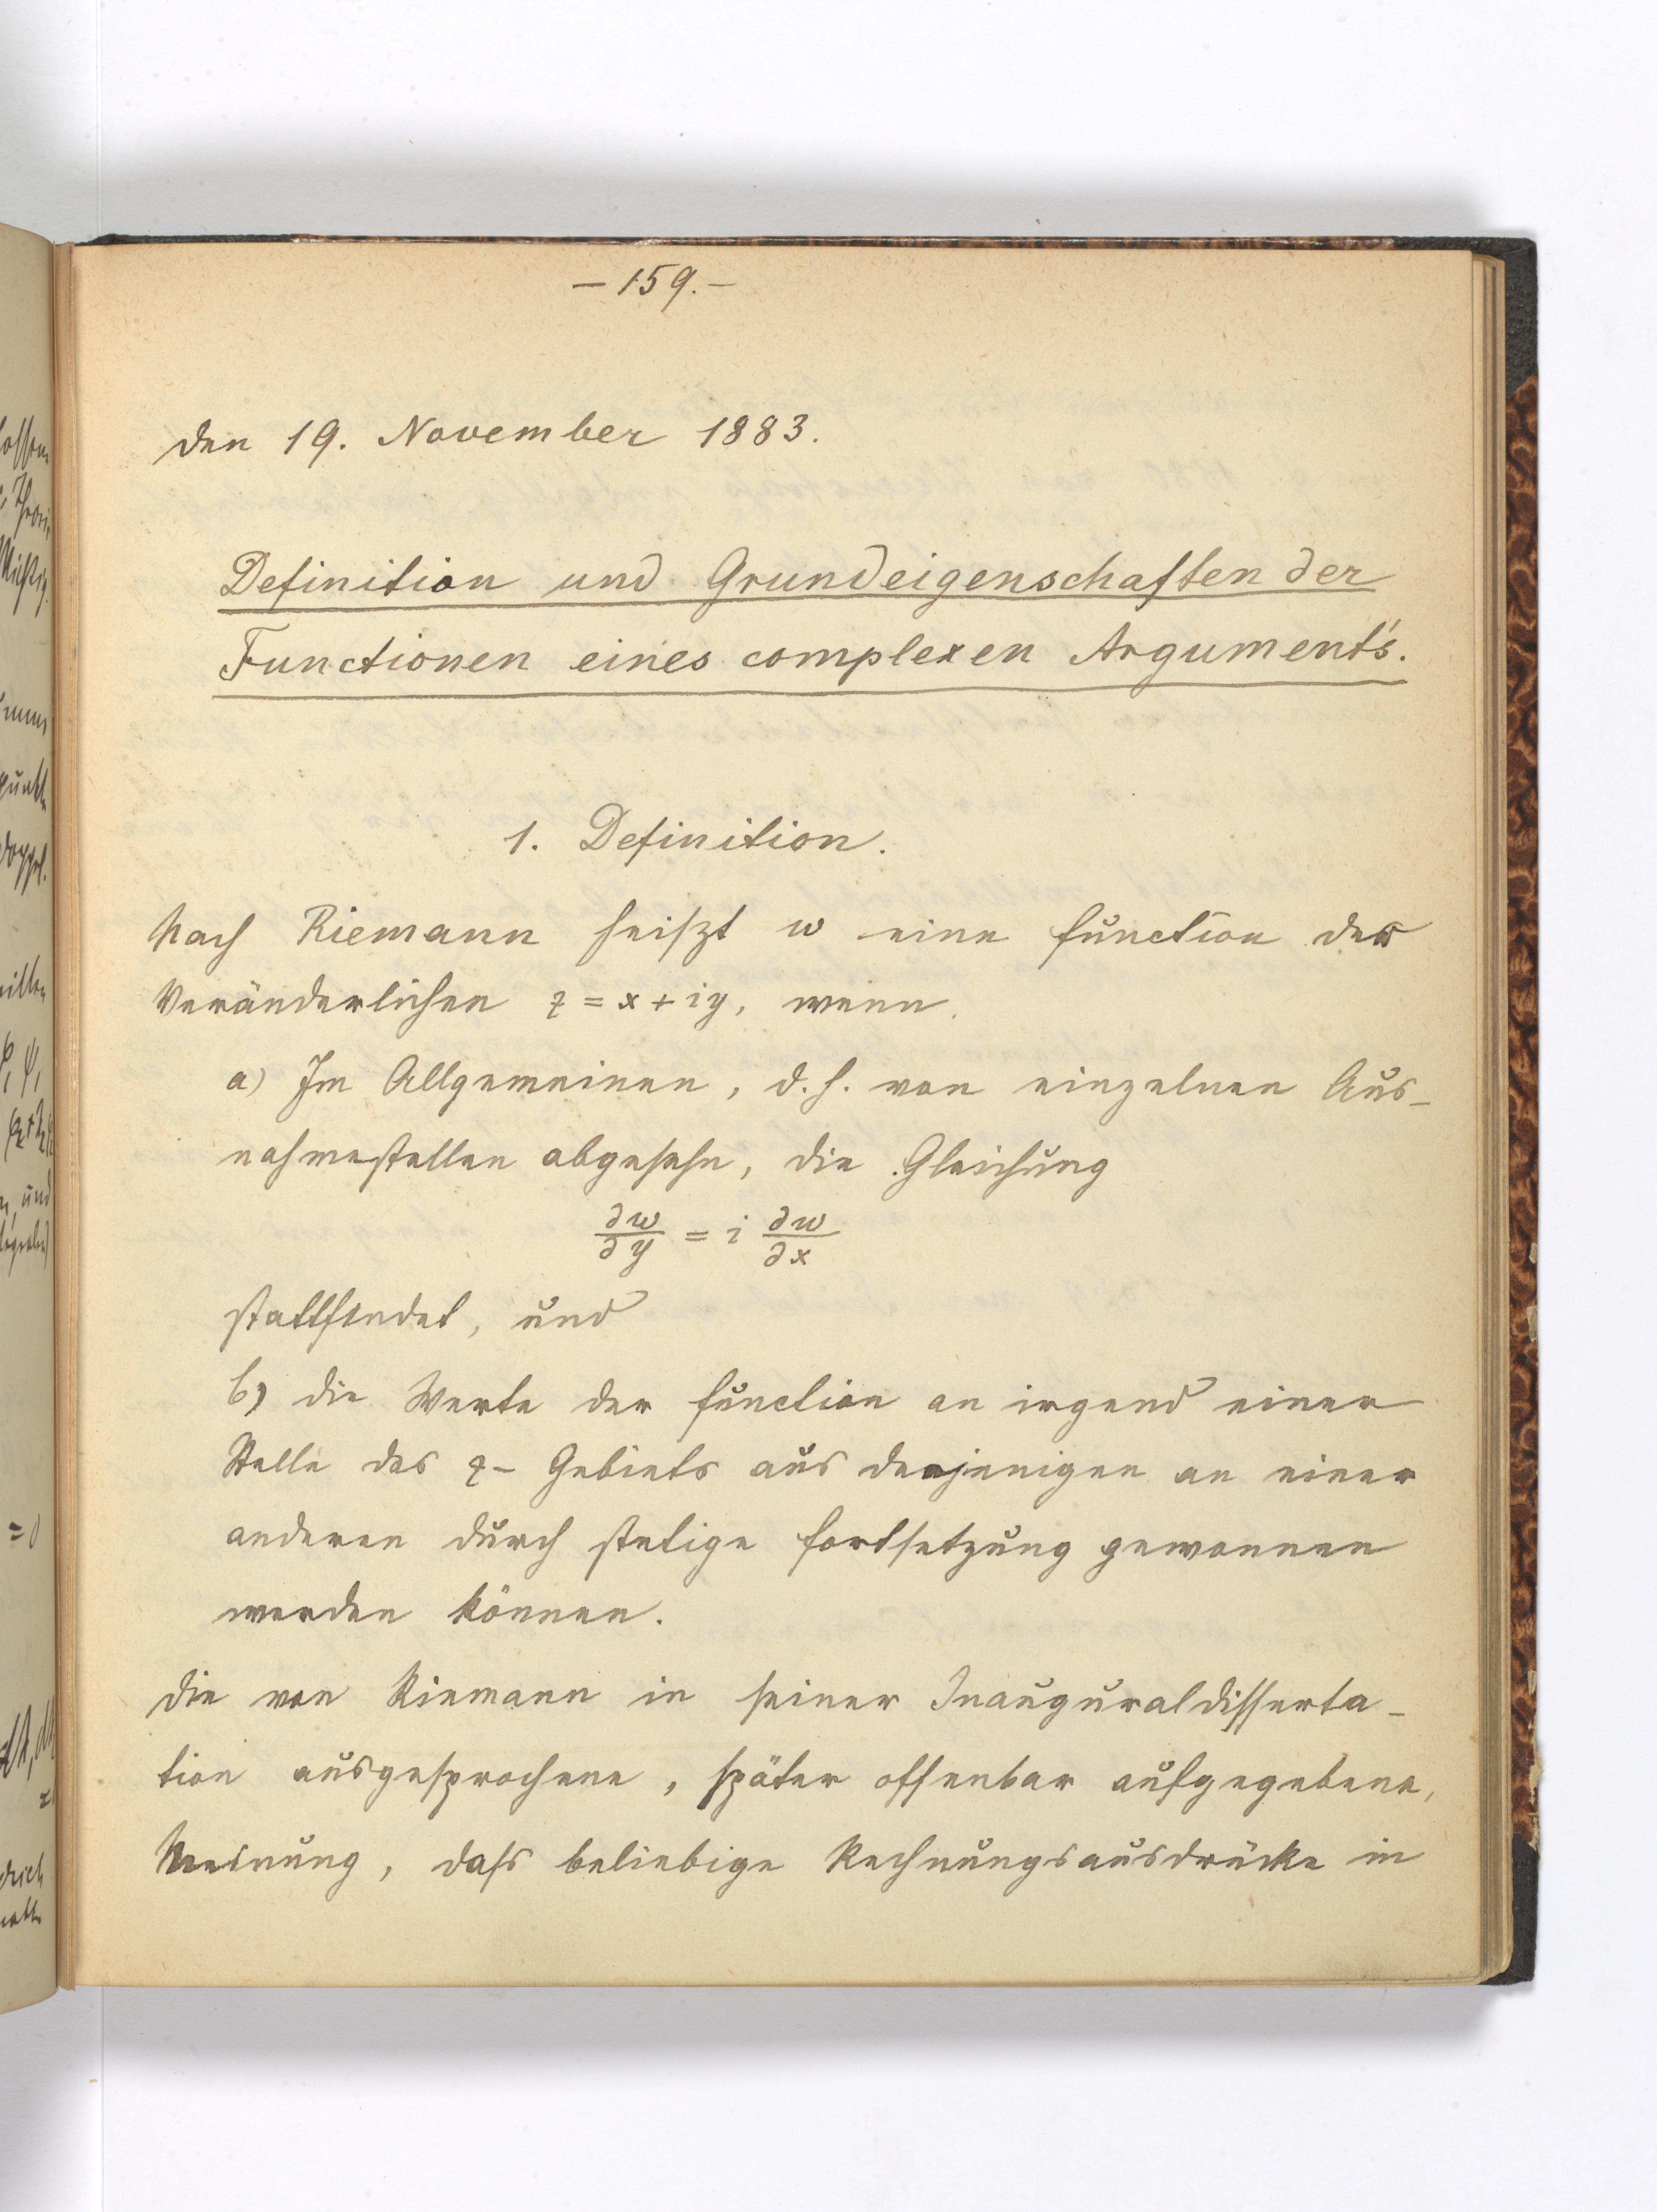 – 159. –
den 19. November 1883.
Definition und Grundeigenschaften der
Functionen eines complexen Arguments.
1. Definition.
Nach Riemann heiszt w eine Function der
Veränderlichen z = x + iy, wenn
a) Im Allgemeinen, d. h. von einzelnen Aus-
nahmestellen abgesehn, die Gleichung
∂w/∂y = i ∂w/∂x
stattfindet, und
b) die Werte der Function an irgend einer
Stelle des z- Gebiets aus denjenigen an einer
anderen durch stetige Fortsetzung gewonnen
werden können.
Die von Riemann in seiner Inauguraldisserta-
tion ausgesprochene, später offenbar aufgegebene,
Meinung, dass beliebige Rechnungsausdrücke in